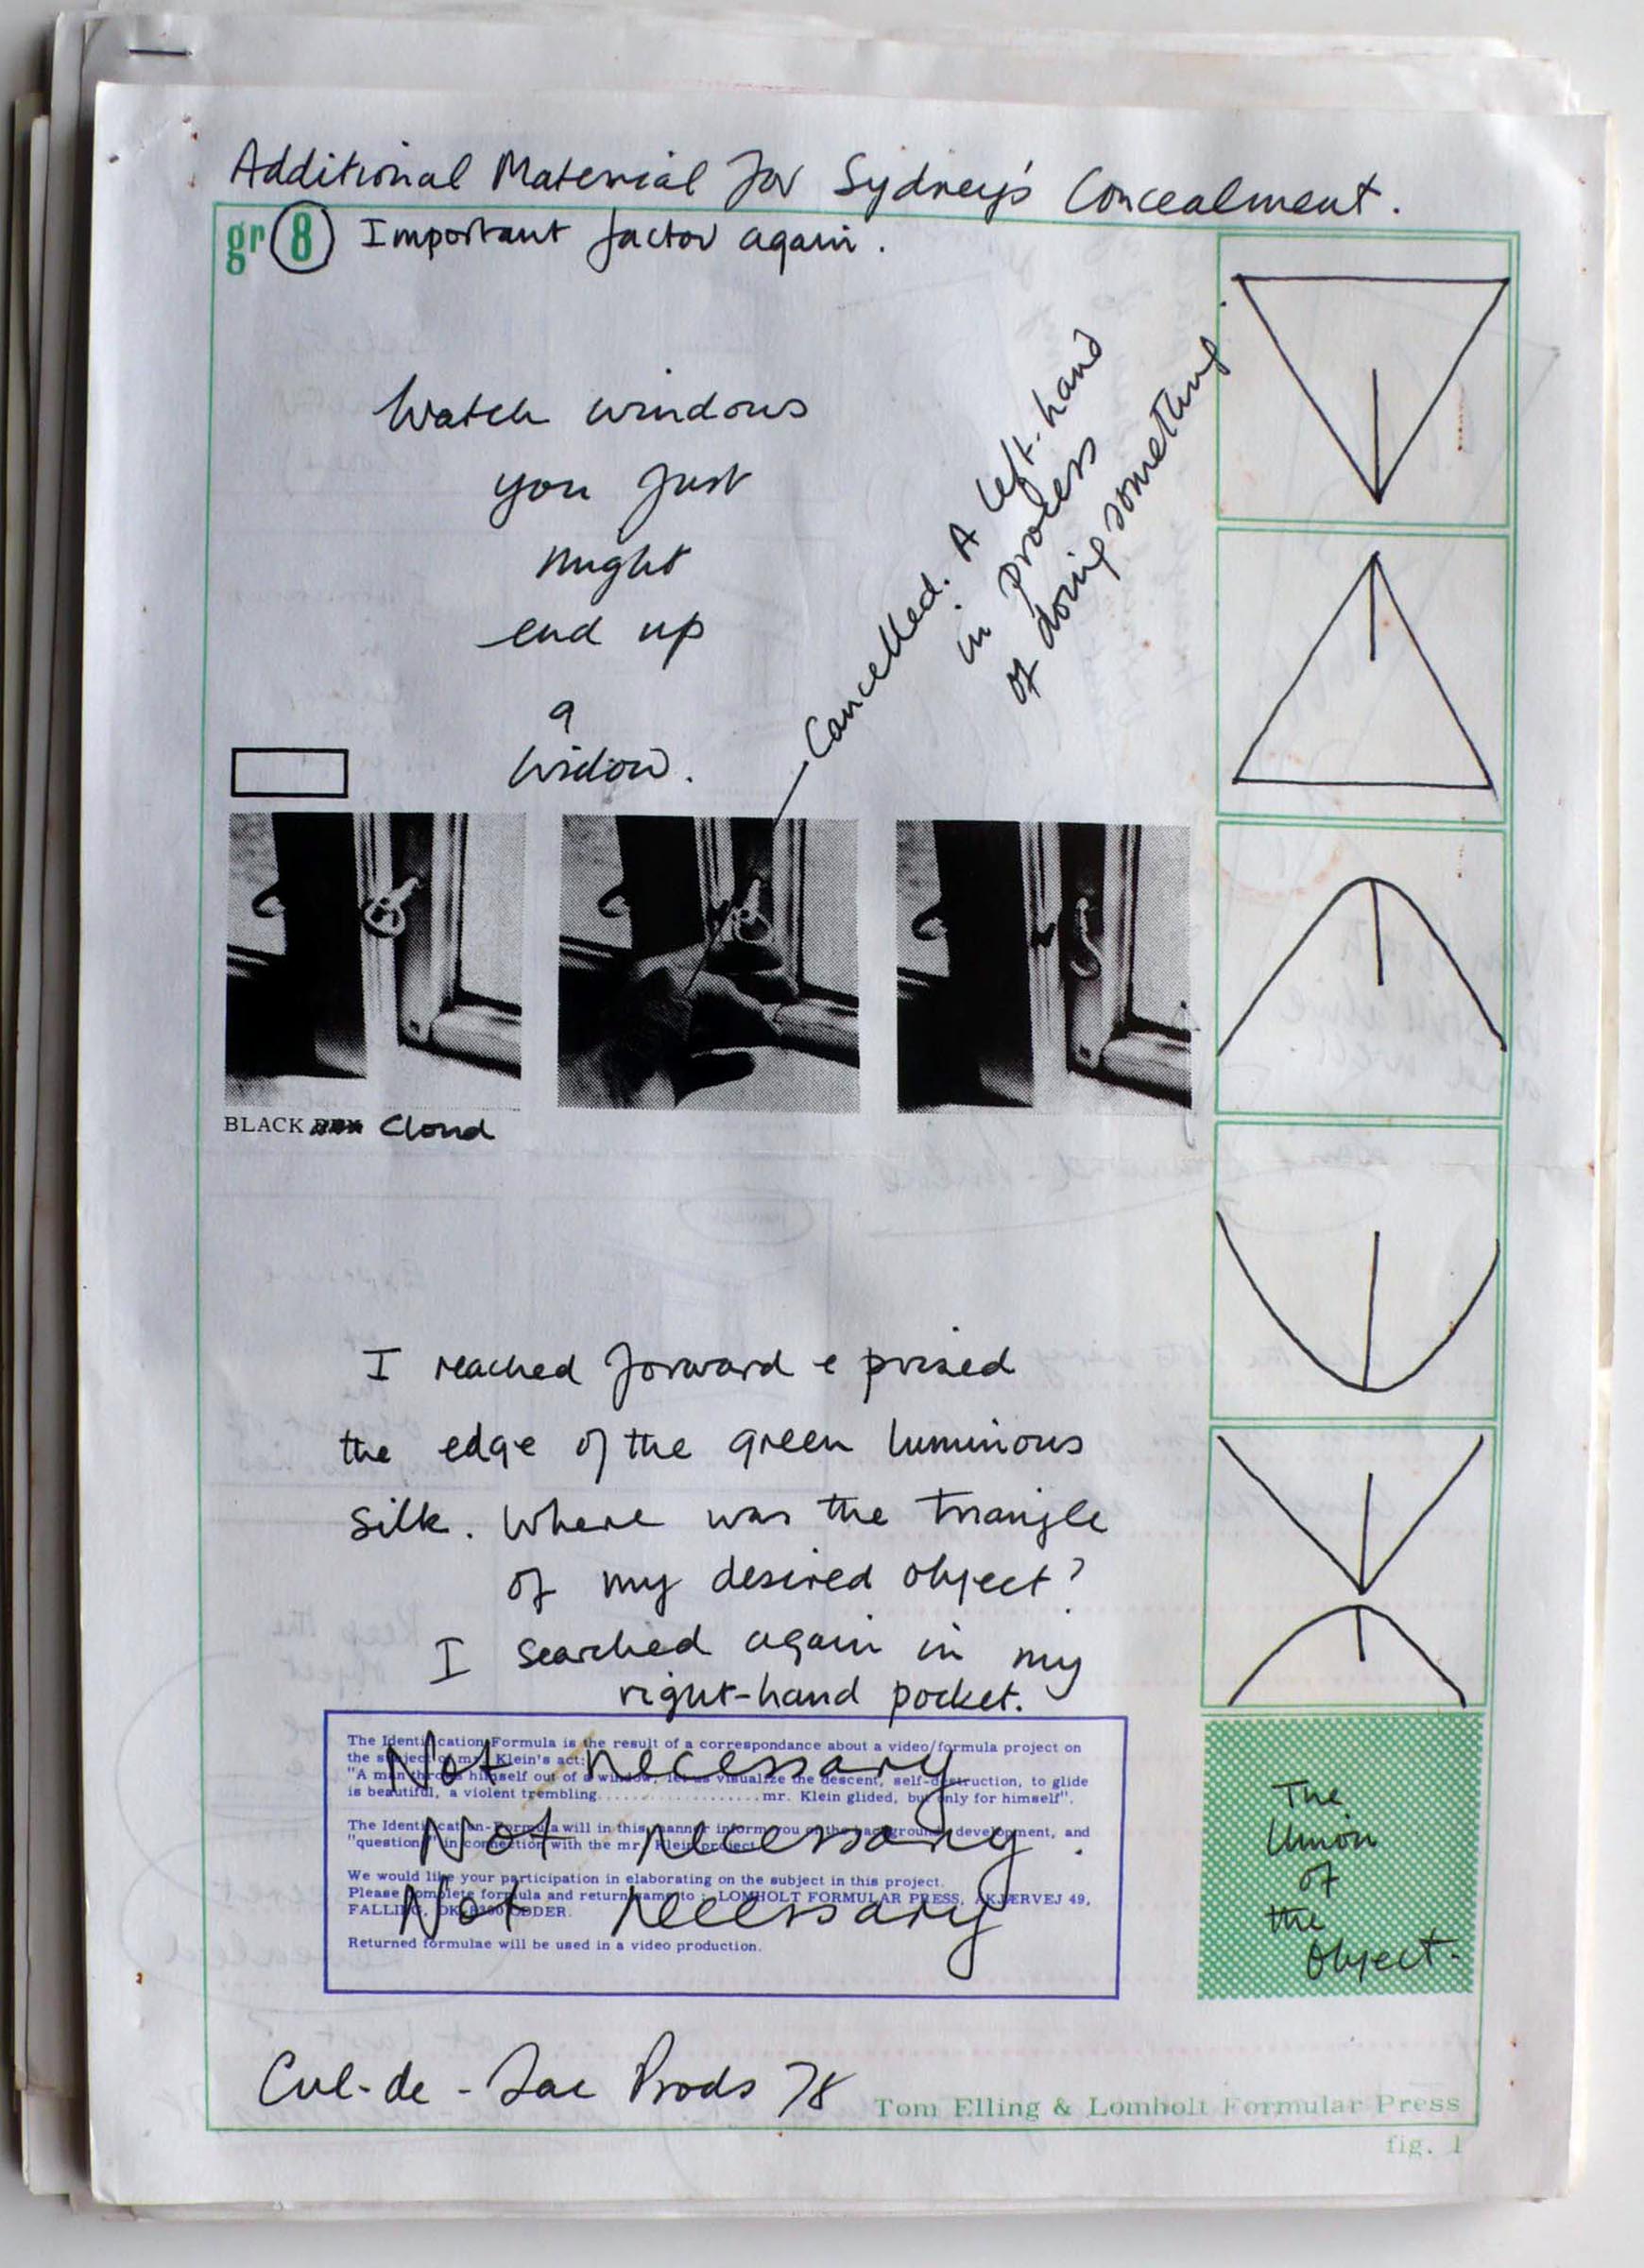 Additional Material for Sydney's Concealment.
gr 8 Important factor again.
Watch windows
you just
might
end up
a
widow.
Cancelled. A left-hand
in process
of doing something.
BLACK Cloud
I reached forward e prised
the edge of the green luminous
silk. Where was the triangle
of my desired object?
I searched again in my
right-hand pocket.
The Identification Formula is the result of a correspondance about a video/formula project on
the subject of mr. Klein's act:
"A man throws himself out of a window, let us visualize the descent, self-destruction, to glide
is beautiful, a violent trembling.....................mr. Klein glided, but only for himself".
The Identification-Formula will in this manner inform you of the background, development, and
"question" in connection with the mr. Klein project.
We would like your participation in elaborating on the subject in this project.
Please complete formula and return same to : LOMHOLT FORMULAR PRESS, AKJÆRVEJ 49,
FALLING, DK-8300 ODDER.
Returned formulae will be used in a video production.
Not necessary
Not necessary.
Not necessary
The
Union
of
the
Object-
Cul-de-Sac Prods 78
Tom Elling & Lomholt Formular Press
fig. 1